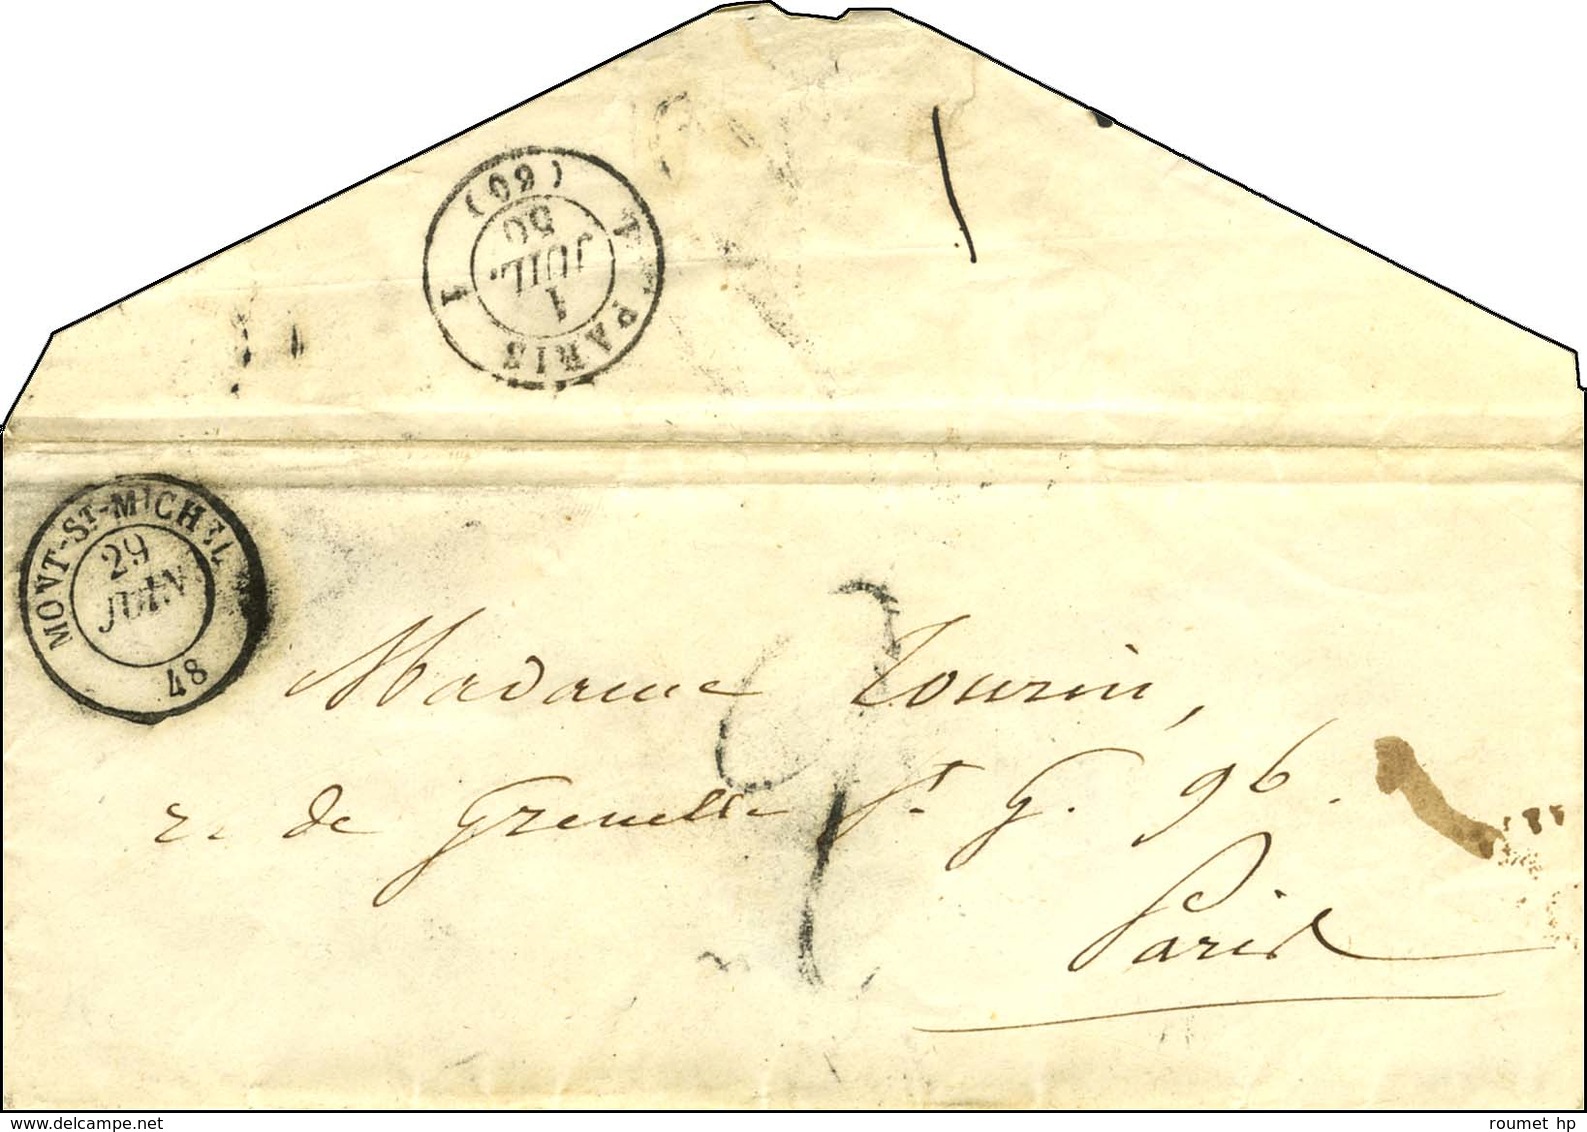 (60)
PARIS
1
1
JUIL.
50
MONT-ST-MICHEL
29
JUIN
48
Madame Tourin,
r. de Grenelle St. G. 96.
Paris
www.delcampe.net
roumet hp